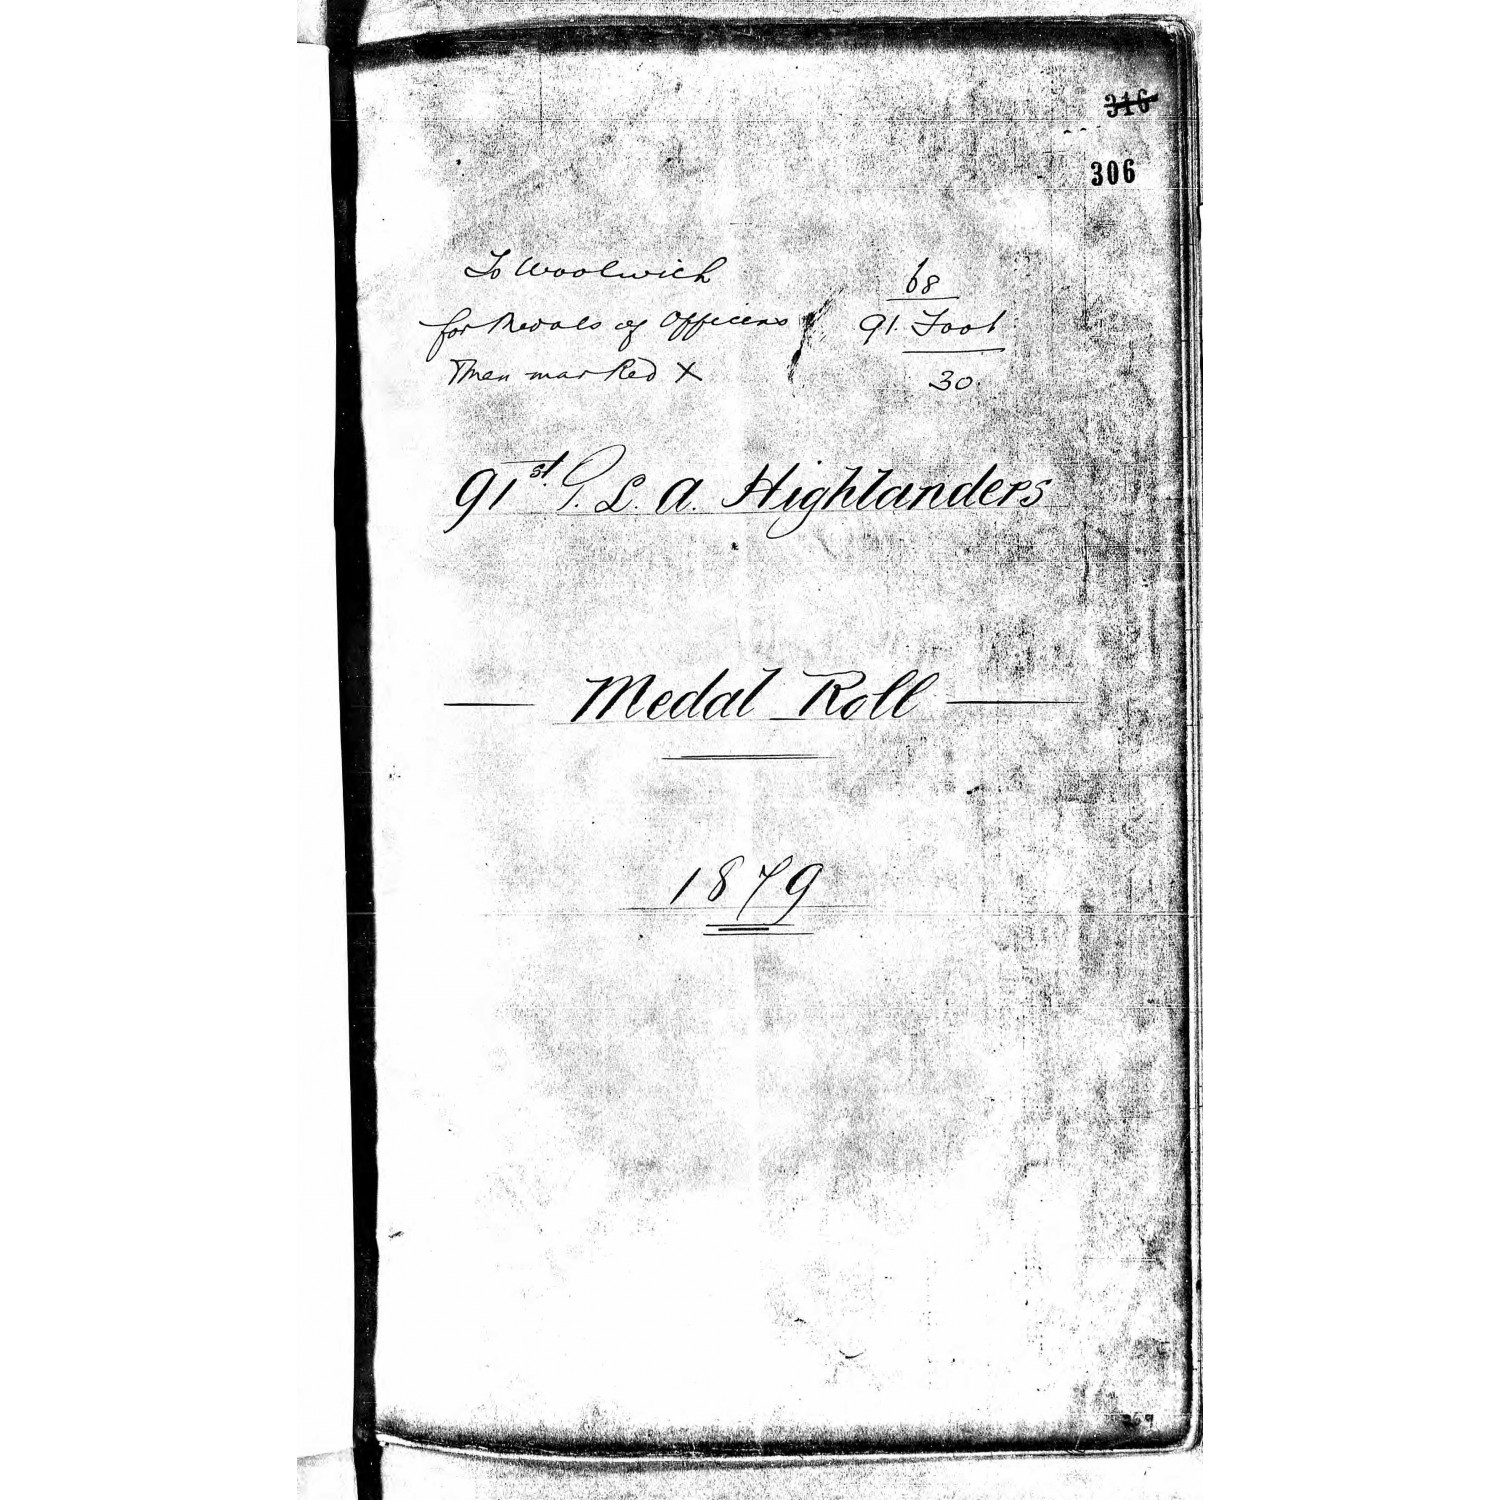 316
306
To Woolwich
for Medals of Officers
Then marked X
68
91. Foot
30
91st P. L. A. Highlanders
Medal Roll
1879